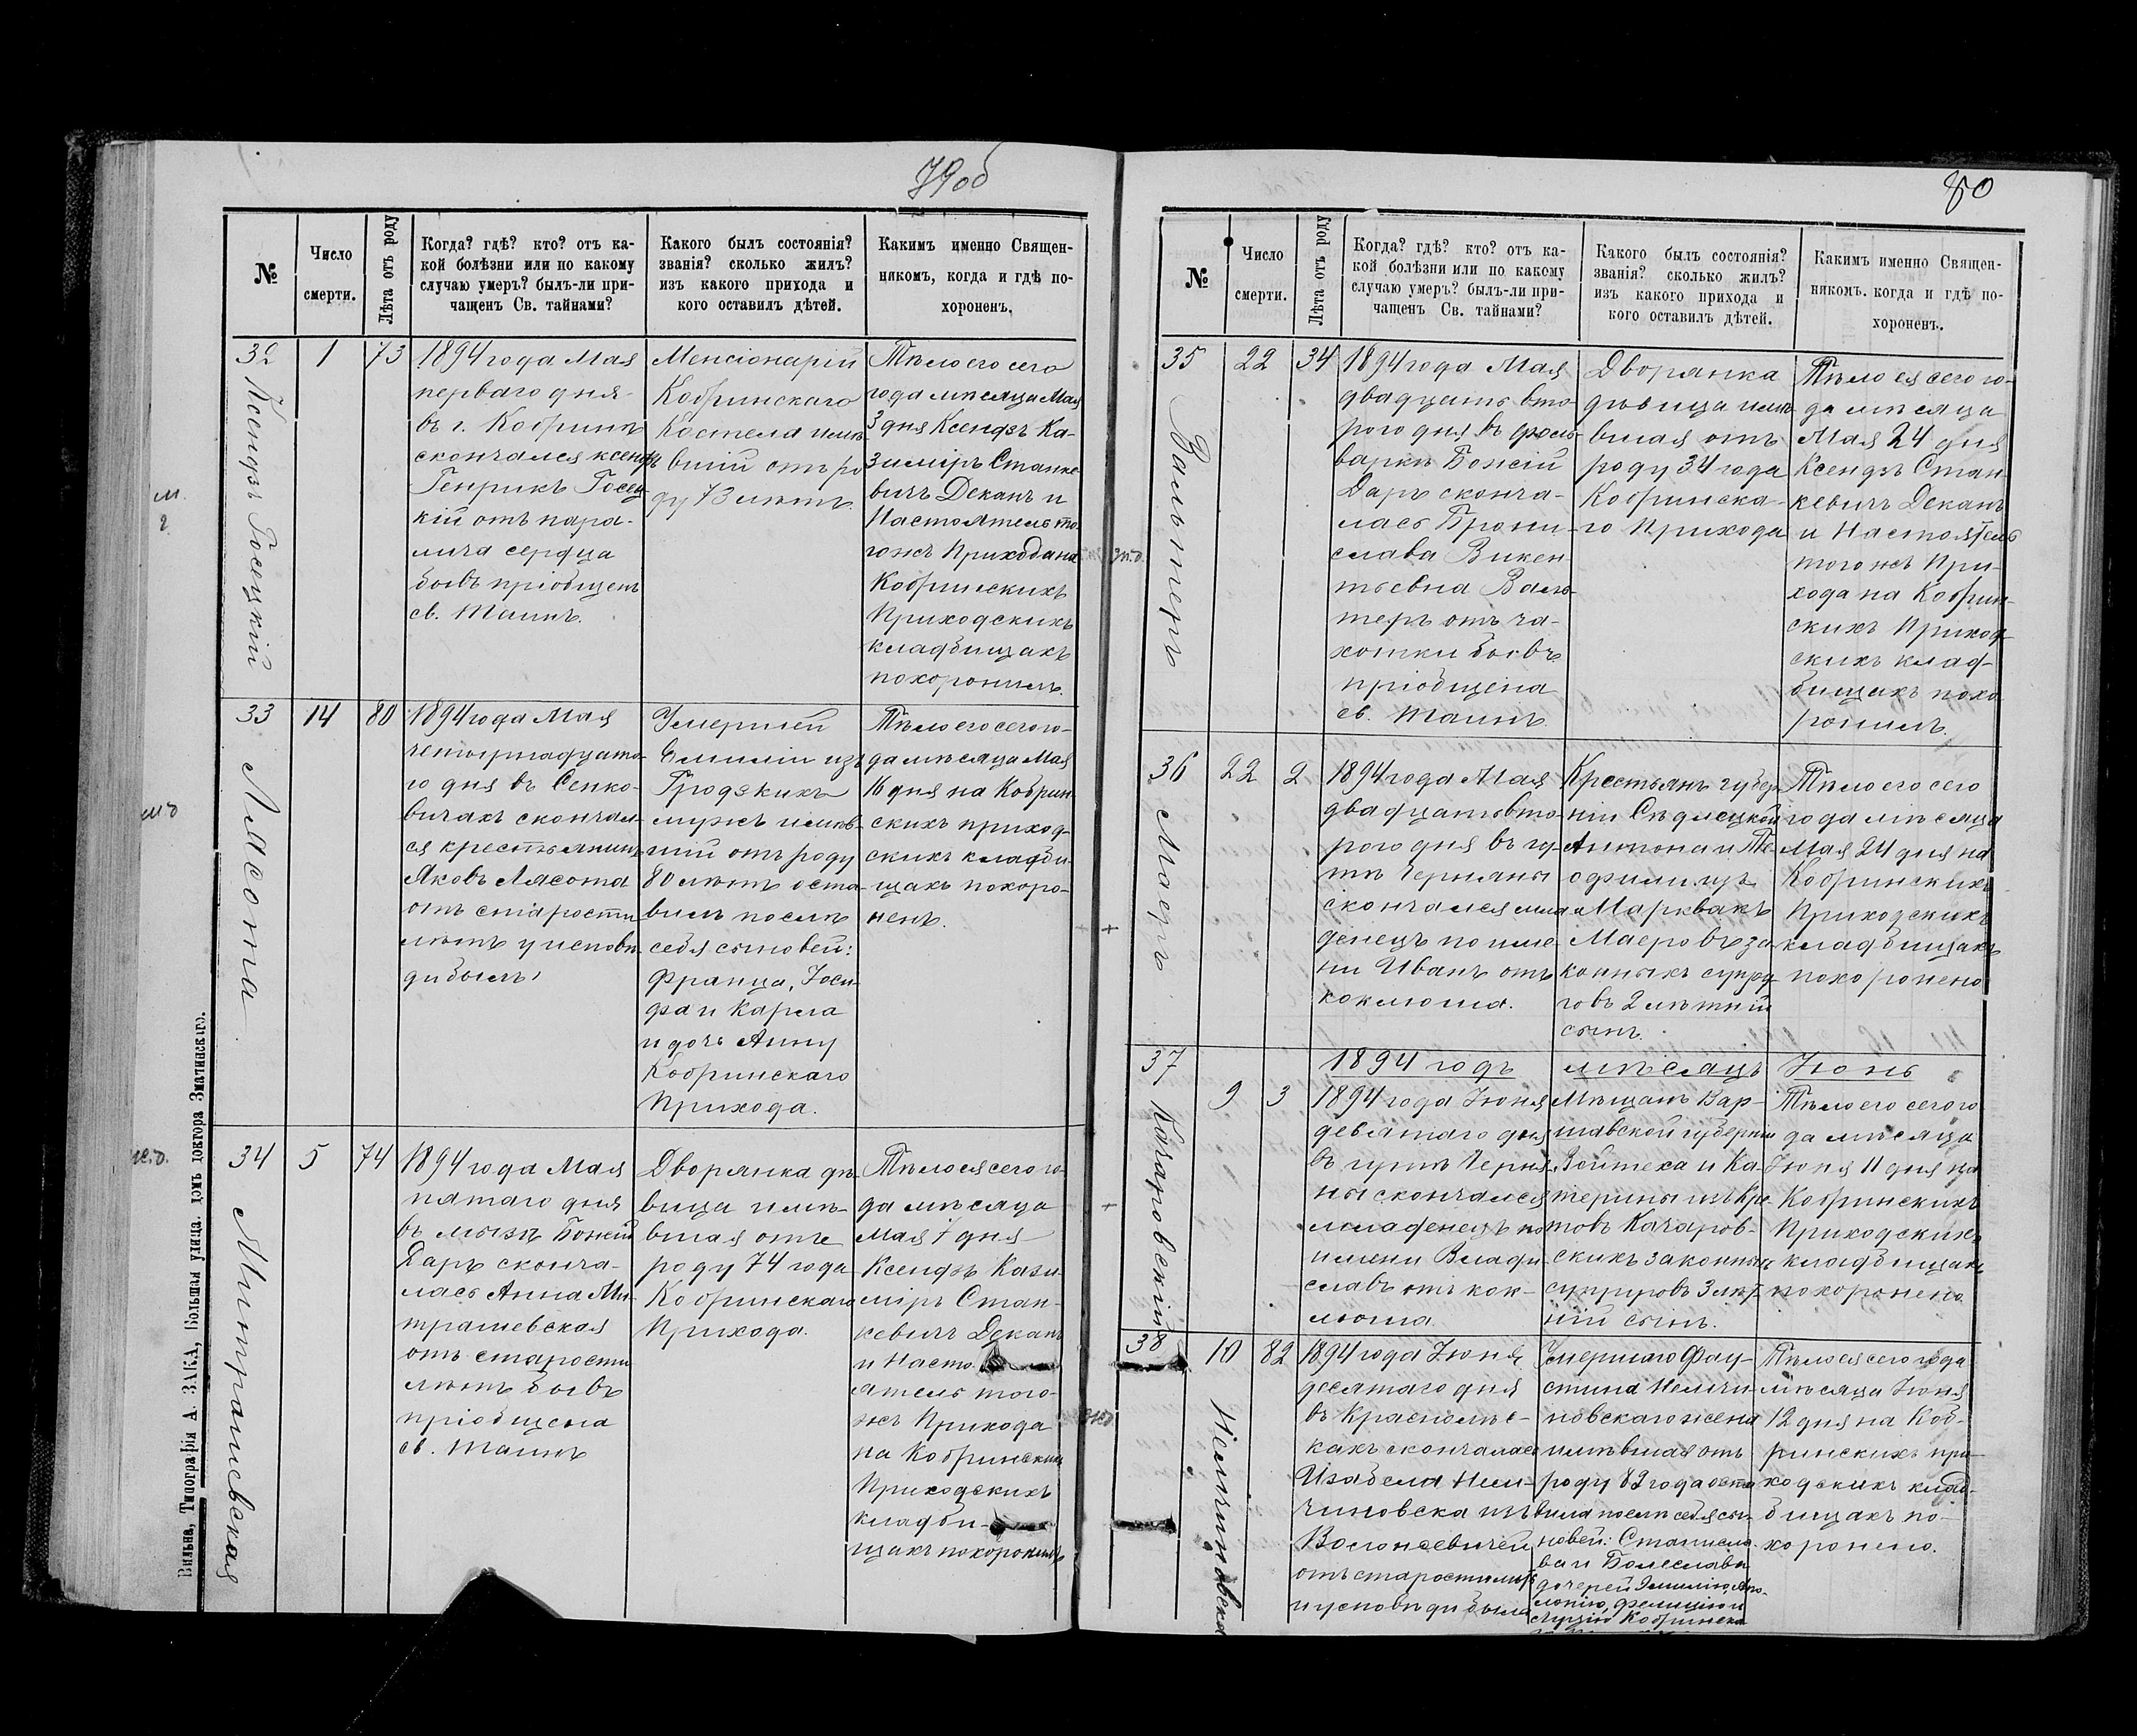 79об
№
Число
смерти.
Лѣта отъ роду
Когда? гдѣ? кто? отъ ка-
кой болѣзни или по какому
случаю умеръ? былъ-ли при-
чащенъ Св. тайнами?
Какого былъ состоянія?
званія? сколько жилъ?
изъ какого прихода и
кого оставилъ дѣтей.
Какимъ именно Священ-
никомъ, когда и гдѣ по-
хороненъ.
32
Ксендзъ Госецкій
1
73
1894 года Мая
перваго дня
въ г. Кобринѣ
скончался ксендзъ
Генрикъ Госец-
кій отъ пара-
лича сердца
бывъ пріобщенъ
св. Таинъ.
Менсіонарій
Кобринскаго
Костела имѣ-
вшій отъ ро
ду 73 лѣтъ.
Тѣло его сего
года мѣсяца Мая
3 дня Ксендзъ Ка-
зиміръ Станке-
вичъ Деканъ и
Настоятель то-
гожъ Прихода на
Кобринскихъ
Приходскихъ
кладбищахъ
похоронилъ.
33
Лясота
14
80
1894 года Мая
четырнадцата-
го дня въ Сенко-
вичахъ скончал-
ся крестьянинъ
Яковъ Лясота
отъ старости
лѣтъ у исповѣ-
ди былъ
Умершей
Емиліи изъ
Гродзкихъ
мужъ имѣв-
шій отъ роду
80 лѣтъ оста-
вилъ послѣ
себя сыновей:
Франца, Іоси-
фа и Карла
и дочь Анну
Кобринскаго
Прихода.
Тѣло его сего го-
да мѣсяца Мая
16 дня на Кобрин-
скихъ приход-
скихъ кладби-
щахъ похоро-
ненъ.
34
Митрашевская
5
74
1894 года Мая
пятаго дня
въ мызѣ Божій
Даръ сконча-
лась Анна Ми-
трашевская
отъ старости
лѣтъ бывъ
пріобщена
св. Таинъ
Дворянка дѣ-
вица имѣ-
вшая отъ
роду 74 года
Кобринскаго
Прихода.
Тѣло ея сего го-
да мѣсяца
Мая 7 дня
Ксендзъ Кази-
міръ Стан-
кевичъ Деканъ
и Насто-
ятель того-
жъ Прихода
на Кобринскихъ
Приходскихъ
кладби-
щахъ похоронилъ
Вильна, Типографія А. ЗАКА, Большая улица, домъ доктора Зматинскаго.
80
№
Число
смерти.
Лѣта отъ роду
Когда? гдѣ? кто? отъ ка-
кой болѣзни или по какому
случаю умеръ? былъ-ли при-
чащенъ Св. тайнами?
Какого былъ состоянія?
званія? сколько жилъ?
изъ какого прихода и
кого оставилъ дѣтей.
Какимъ именно Священ-
никомъ. когда и гдѣ по-
хороненъ.
35
Вальтеръ
22
34
1894 года Мая
двадцать вто-
рого дня въ фоль-
варкѣ Божій
Даръ сконча-
лась Брони-
слава Викен-
тьевна Валь-
теръ отъ ча-
хотки бывъ
пріобщена
св. Таинъ
Дворянка
дѣвица имѣ-
вшая отъ
роду 34 года
Кобринска-
го Прихода
Тѣло ея сего го-
да мѣсяца
Мая 24 дня
Ксендзъ Стан-
кевичъ Деканъ
и Настоятель
того жъ При-
хода на Кобрин-
скихъ Приход-
скихъ клад-
бищахъ похо
ронилъ.
36
Маеръ
22
2
1894 года Мая
двадцать вто-
рого дня въ гу-
тѣ Черняны
скончался мла-
денецъ по име-
ни Иванъ отъ
коклюша.
Крестьянъ губер-
ніи Сѣдлецкой
Антона и Те-
офили изъ
Марквакъ
Маеровъ за-
конныхъ супру-
говъ 2 лѣтній
сынъ.
Тѣло его сего
года мѣсяца
Мая 24 дня на
Кобринскихъ
Приходскихъ
кладбищахъ
похоронено
1894 годъ мѣсяцъ Іюнь
37
Качаровскій
9
3
1894 года Іюня
девятаго дня
въ гутѣ Черня-
ны скончался
младенецъ по
имени Влади-
славъ отъ кок-
люша.
Мѣщанъ Вар-
шавской губерніи
Войтеха и Ка-
терины изъ Кре-
товъ Качаров-
скихъ законныхъ
супруговъ 3 лѣт-
ній сынъ.
Тѣло его сего го
да мѣсяца
Іюня 11 дня на
Кобринскихъ
Приходскихъ
кладбищахъ
похоронено.
38
Немчиновска
10
82
1894 года Іюня
десятаго дня
въ Красноляс-
кахъ скончалась
Изабела Нем-
чиновска изъ
Волонсевичей
отъ старости лѣтъ
и исповѣди была
Умершаго Фау-
стина Немчи-
новскаго жена
имѣвшая отъ
роду 82 года оста-
вила послѣ себя сы-
новей: Станисла-
ва и Болеслава
дочерей Эмилію, Апо-
лонію, Фелицію и
Кобринска
Тѣло ея сего года
мѣсяца Іюня
12 дня на Коб-
ринскихъ при-
ходскихъ клад-
бищахъ по-
хоронено.